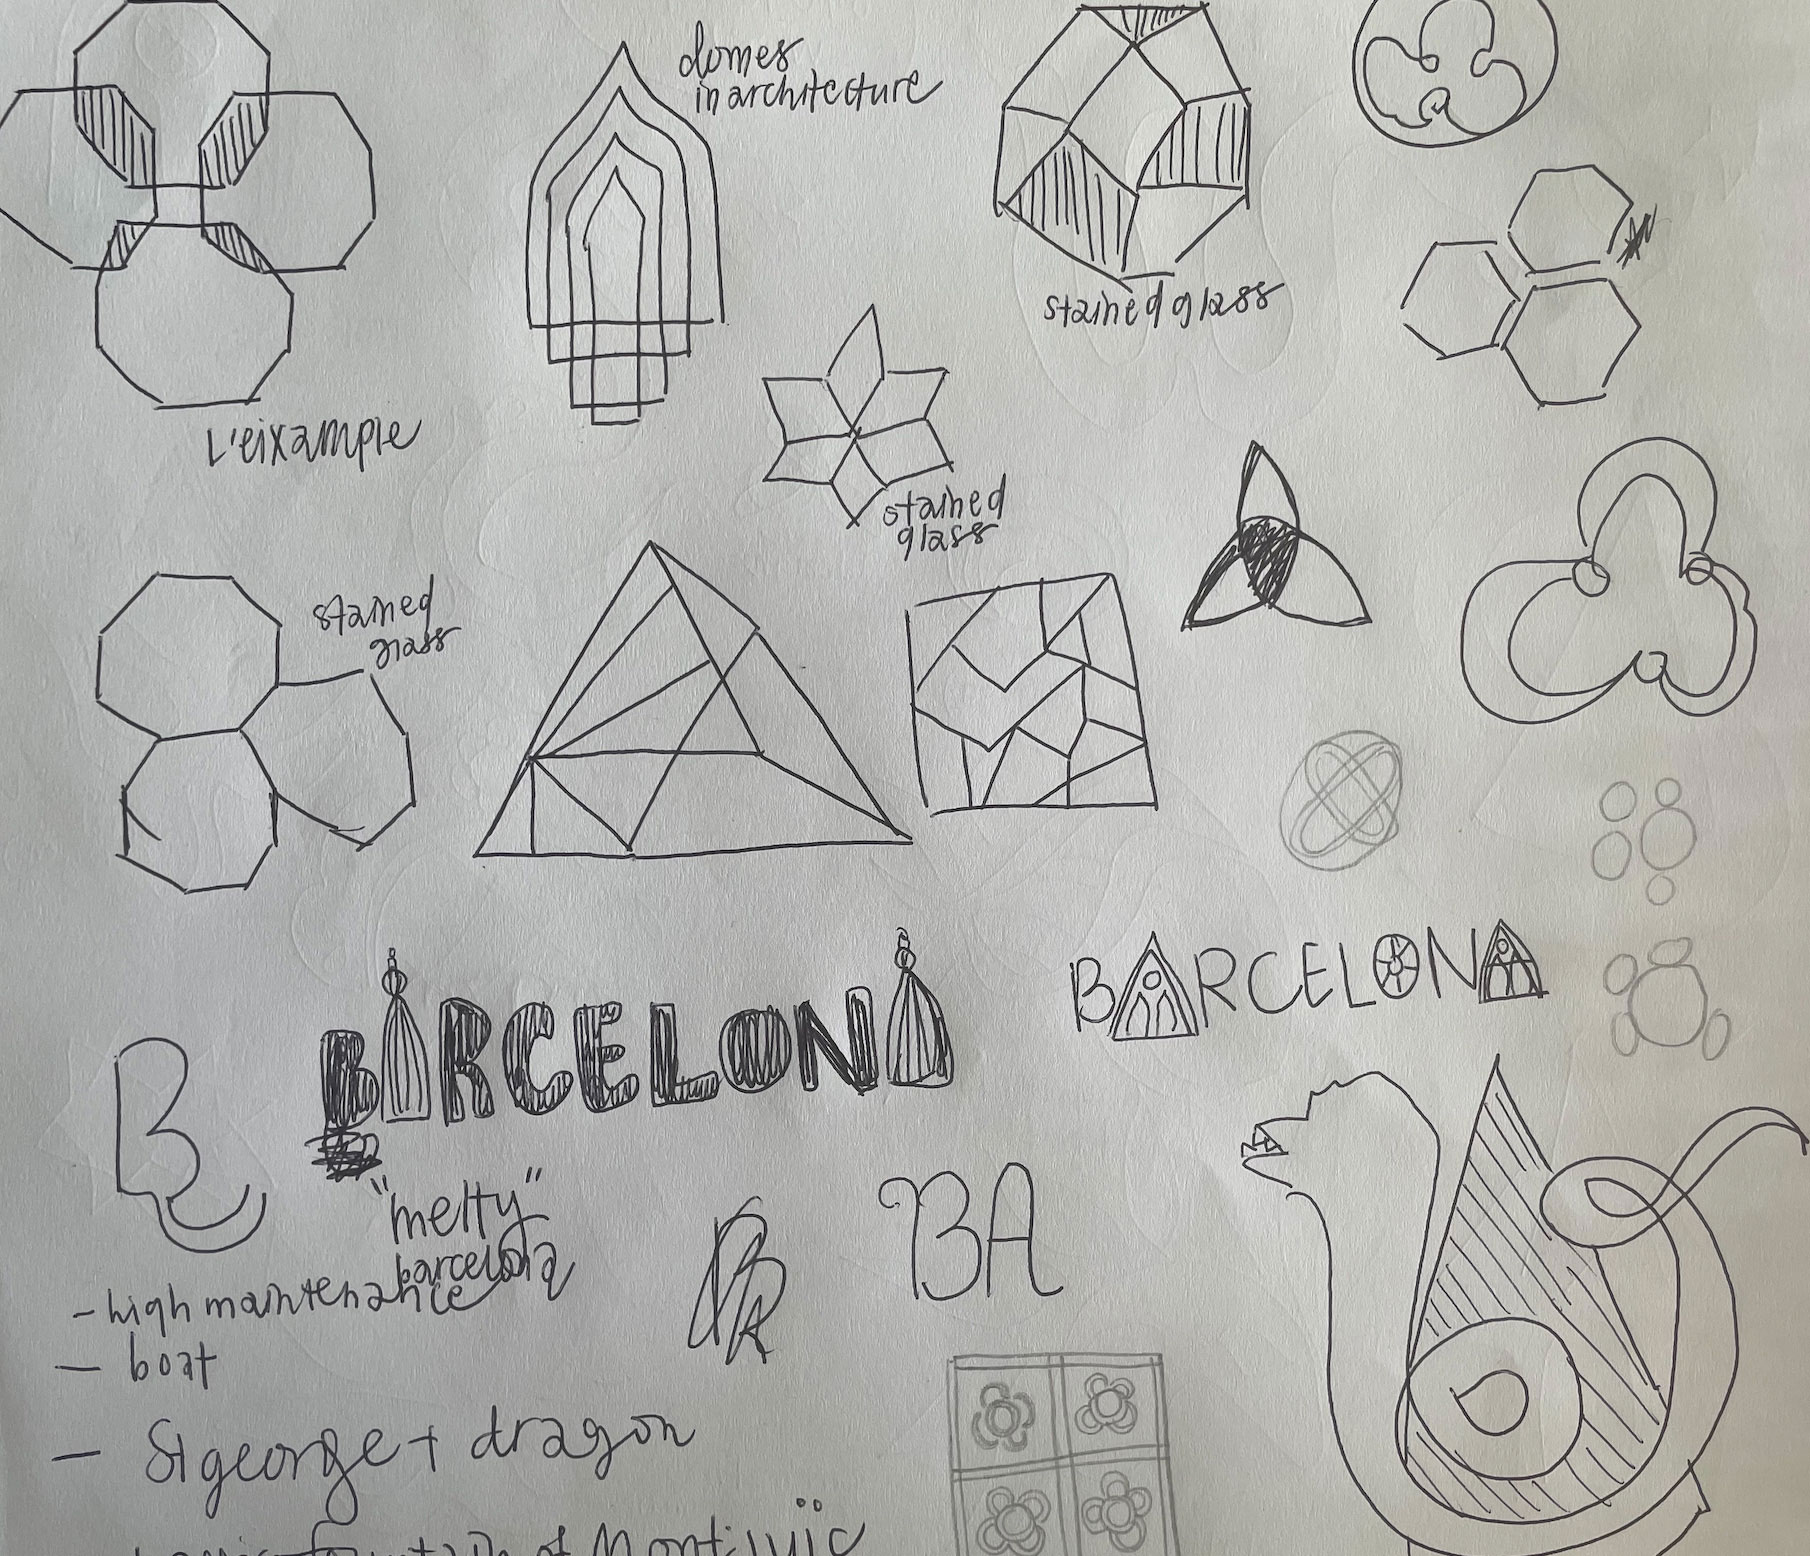 domes
in architecture
stained glass
L'eixample
stained
glass
stained
glass
BARCELONA
BARCELONA
B
"melty"
barcelona
BA
- high maintenance
- boat
- St george + dragon
fountain of Montjuïc